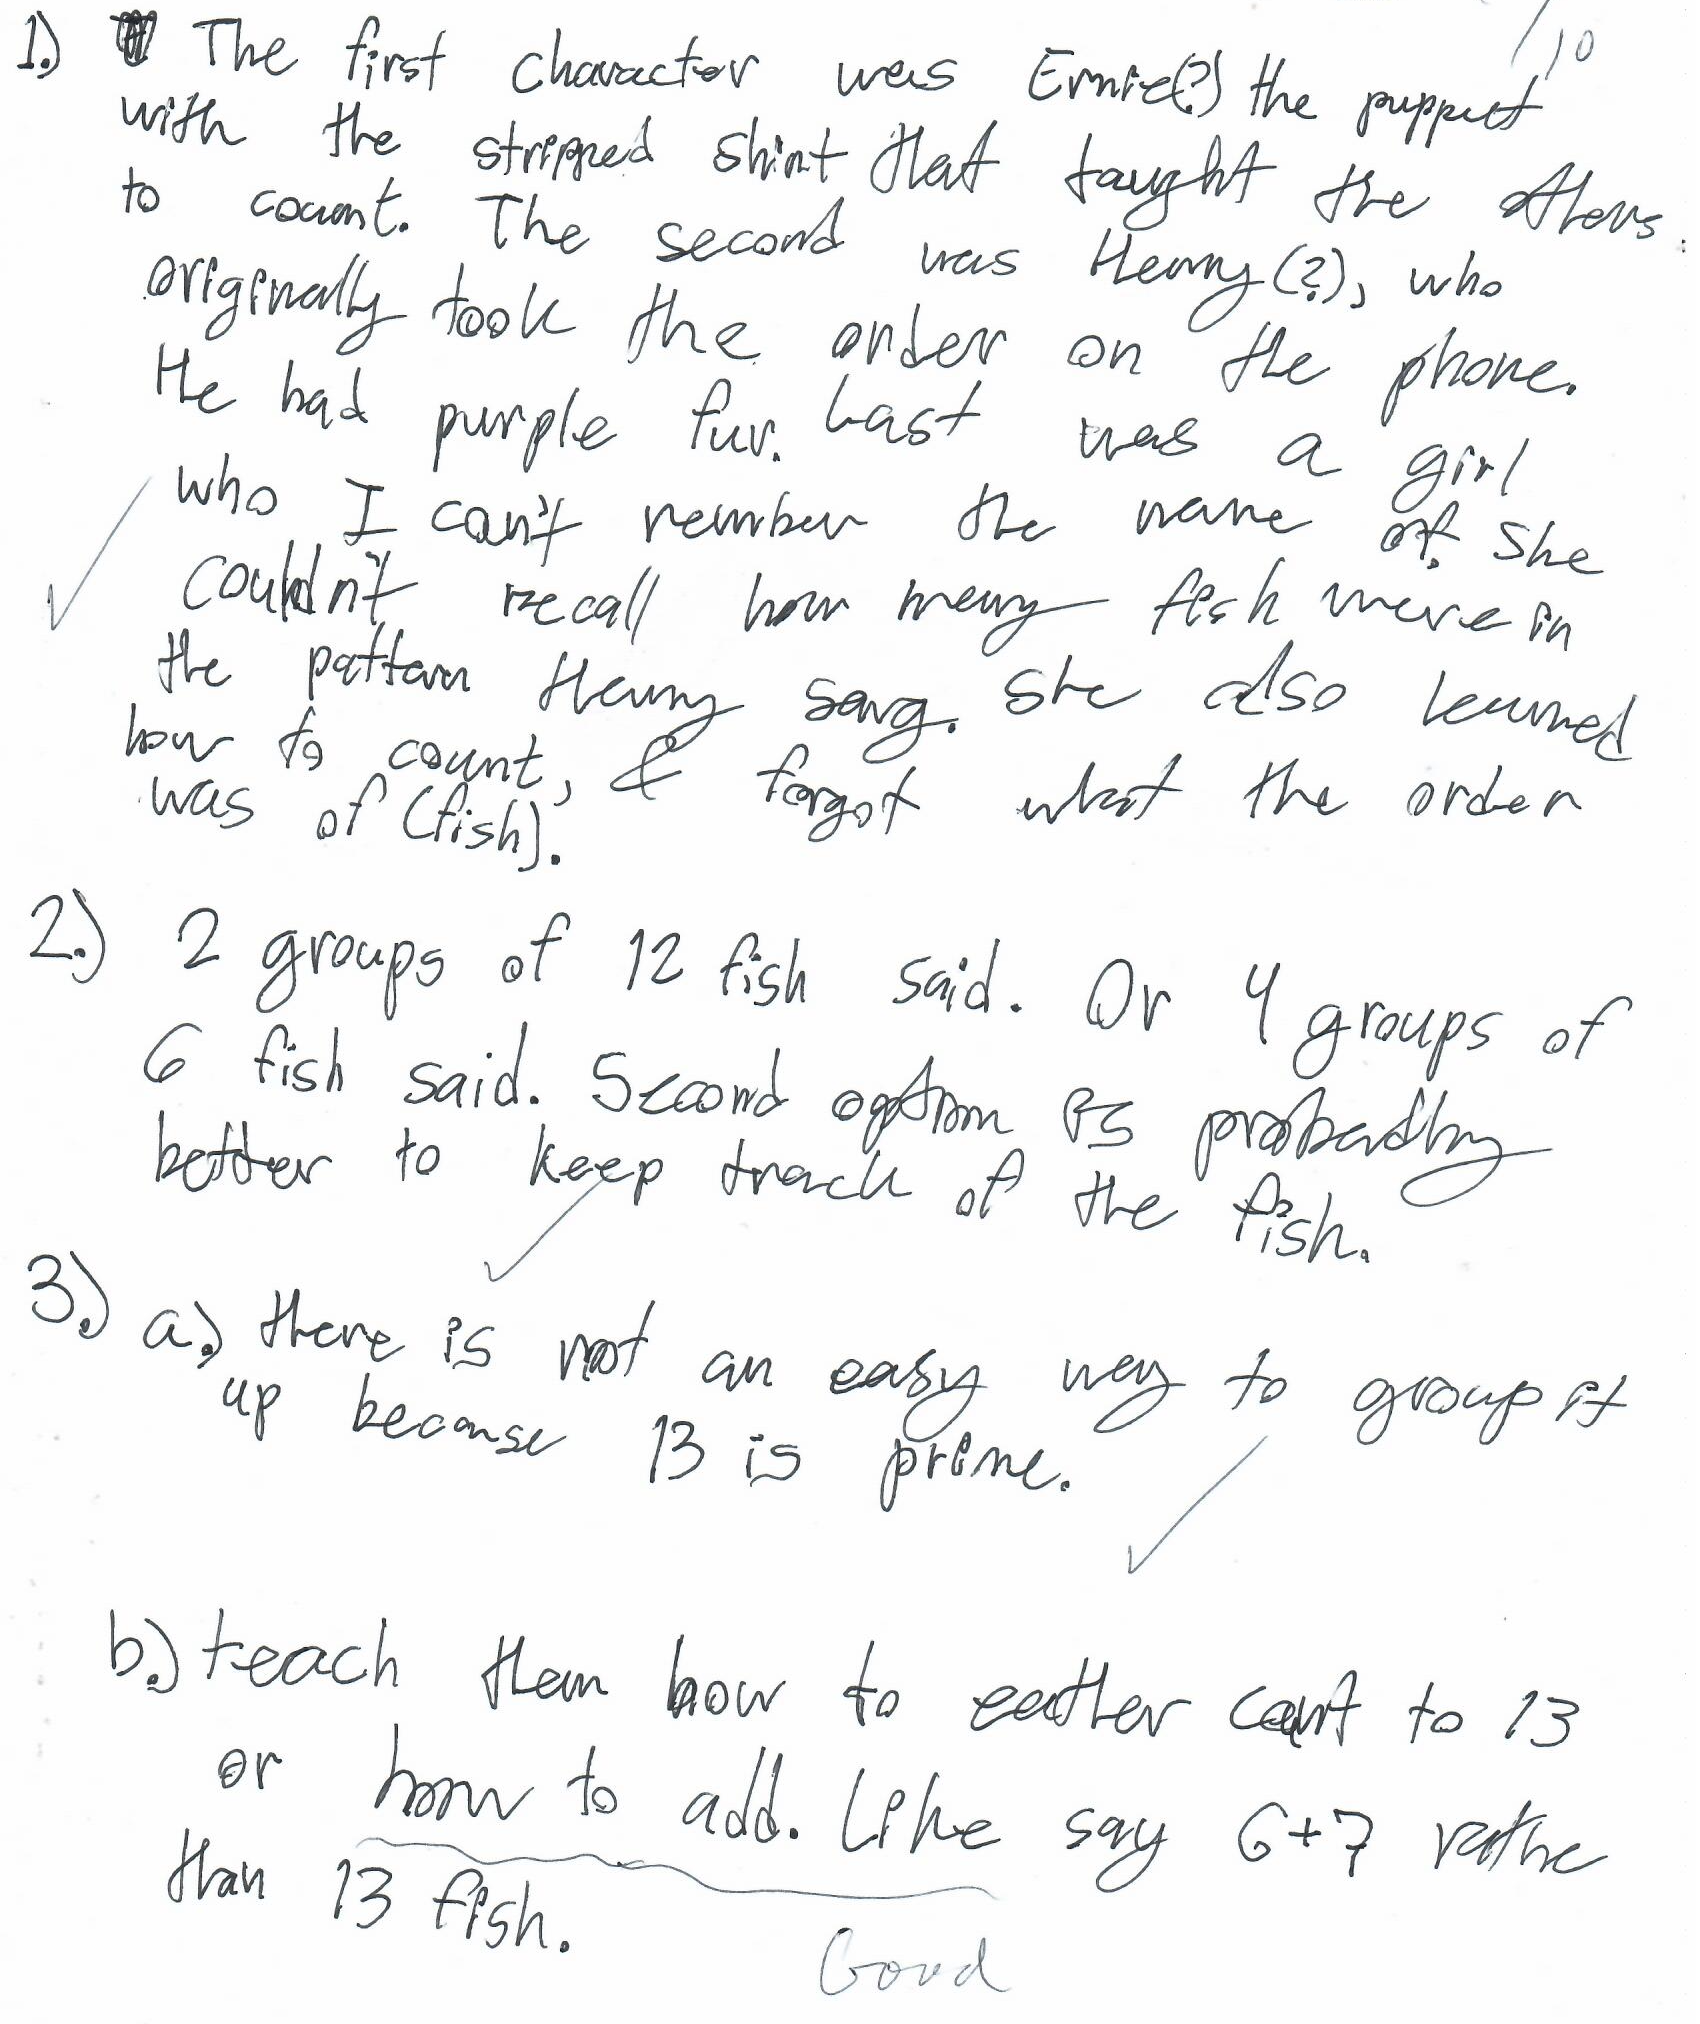 /10
1.) The first character was Ernie(?) the puppet
with the stripped shirt that taught the others
to count. The second was Henry(?), who
originally took the order on the phone.
He had purple fur. Last was a girl
who I can't rember the name of. She
couldn't recall how many fish were in
the pattern Henry sang. She also learned
how to count, & forgot what the order
was of (fish).
2.) 2 groups of 12 fish said. Or 4 groups of
6 fish said. Second option is probably
better to keep track of the fish.
3.) a.) there is not an easy way to group it
up because 13 is prime.
b.) teach them how to eather count to 13
or how to add. Like say 6+7 rathe
than 13 fish.
Good